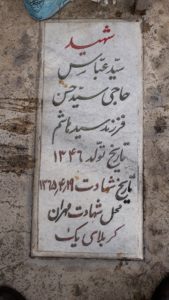 شهید
سید عباس
حاجی سید حسن
فرزند سید هاشم
تاریخ تولد ۱۳۴۶
تاریخ شهادت ۱۳۶۵٫۴٫۱۹
محل شهادت مهران
کربلای یک